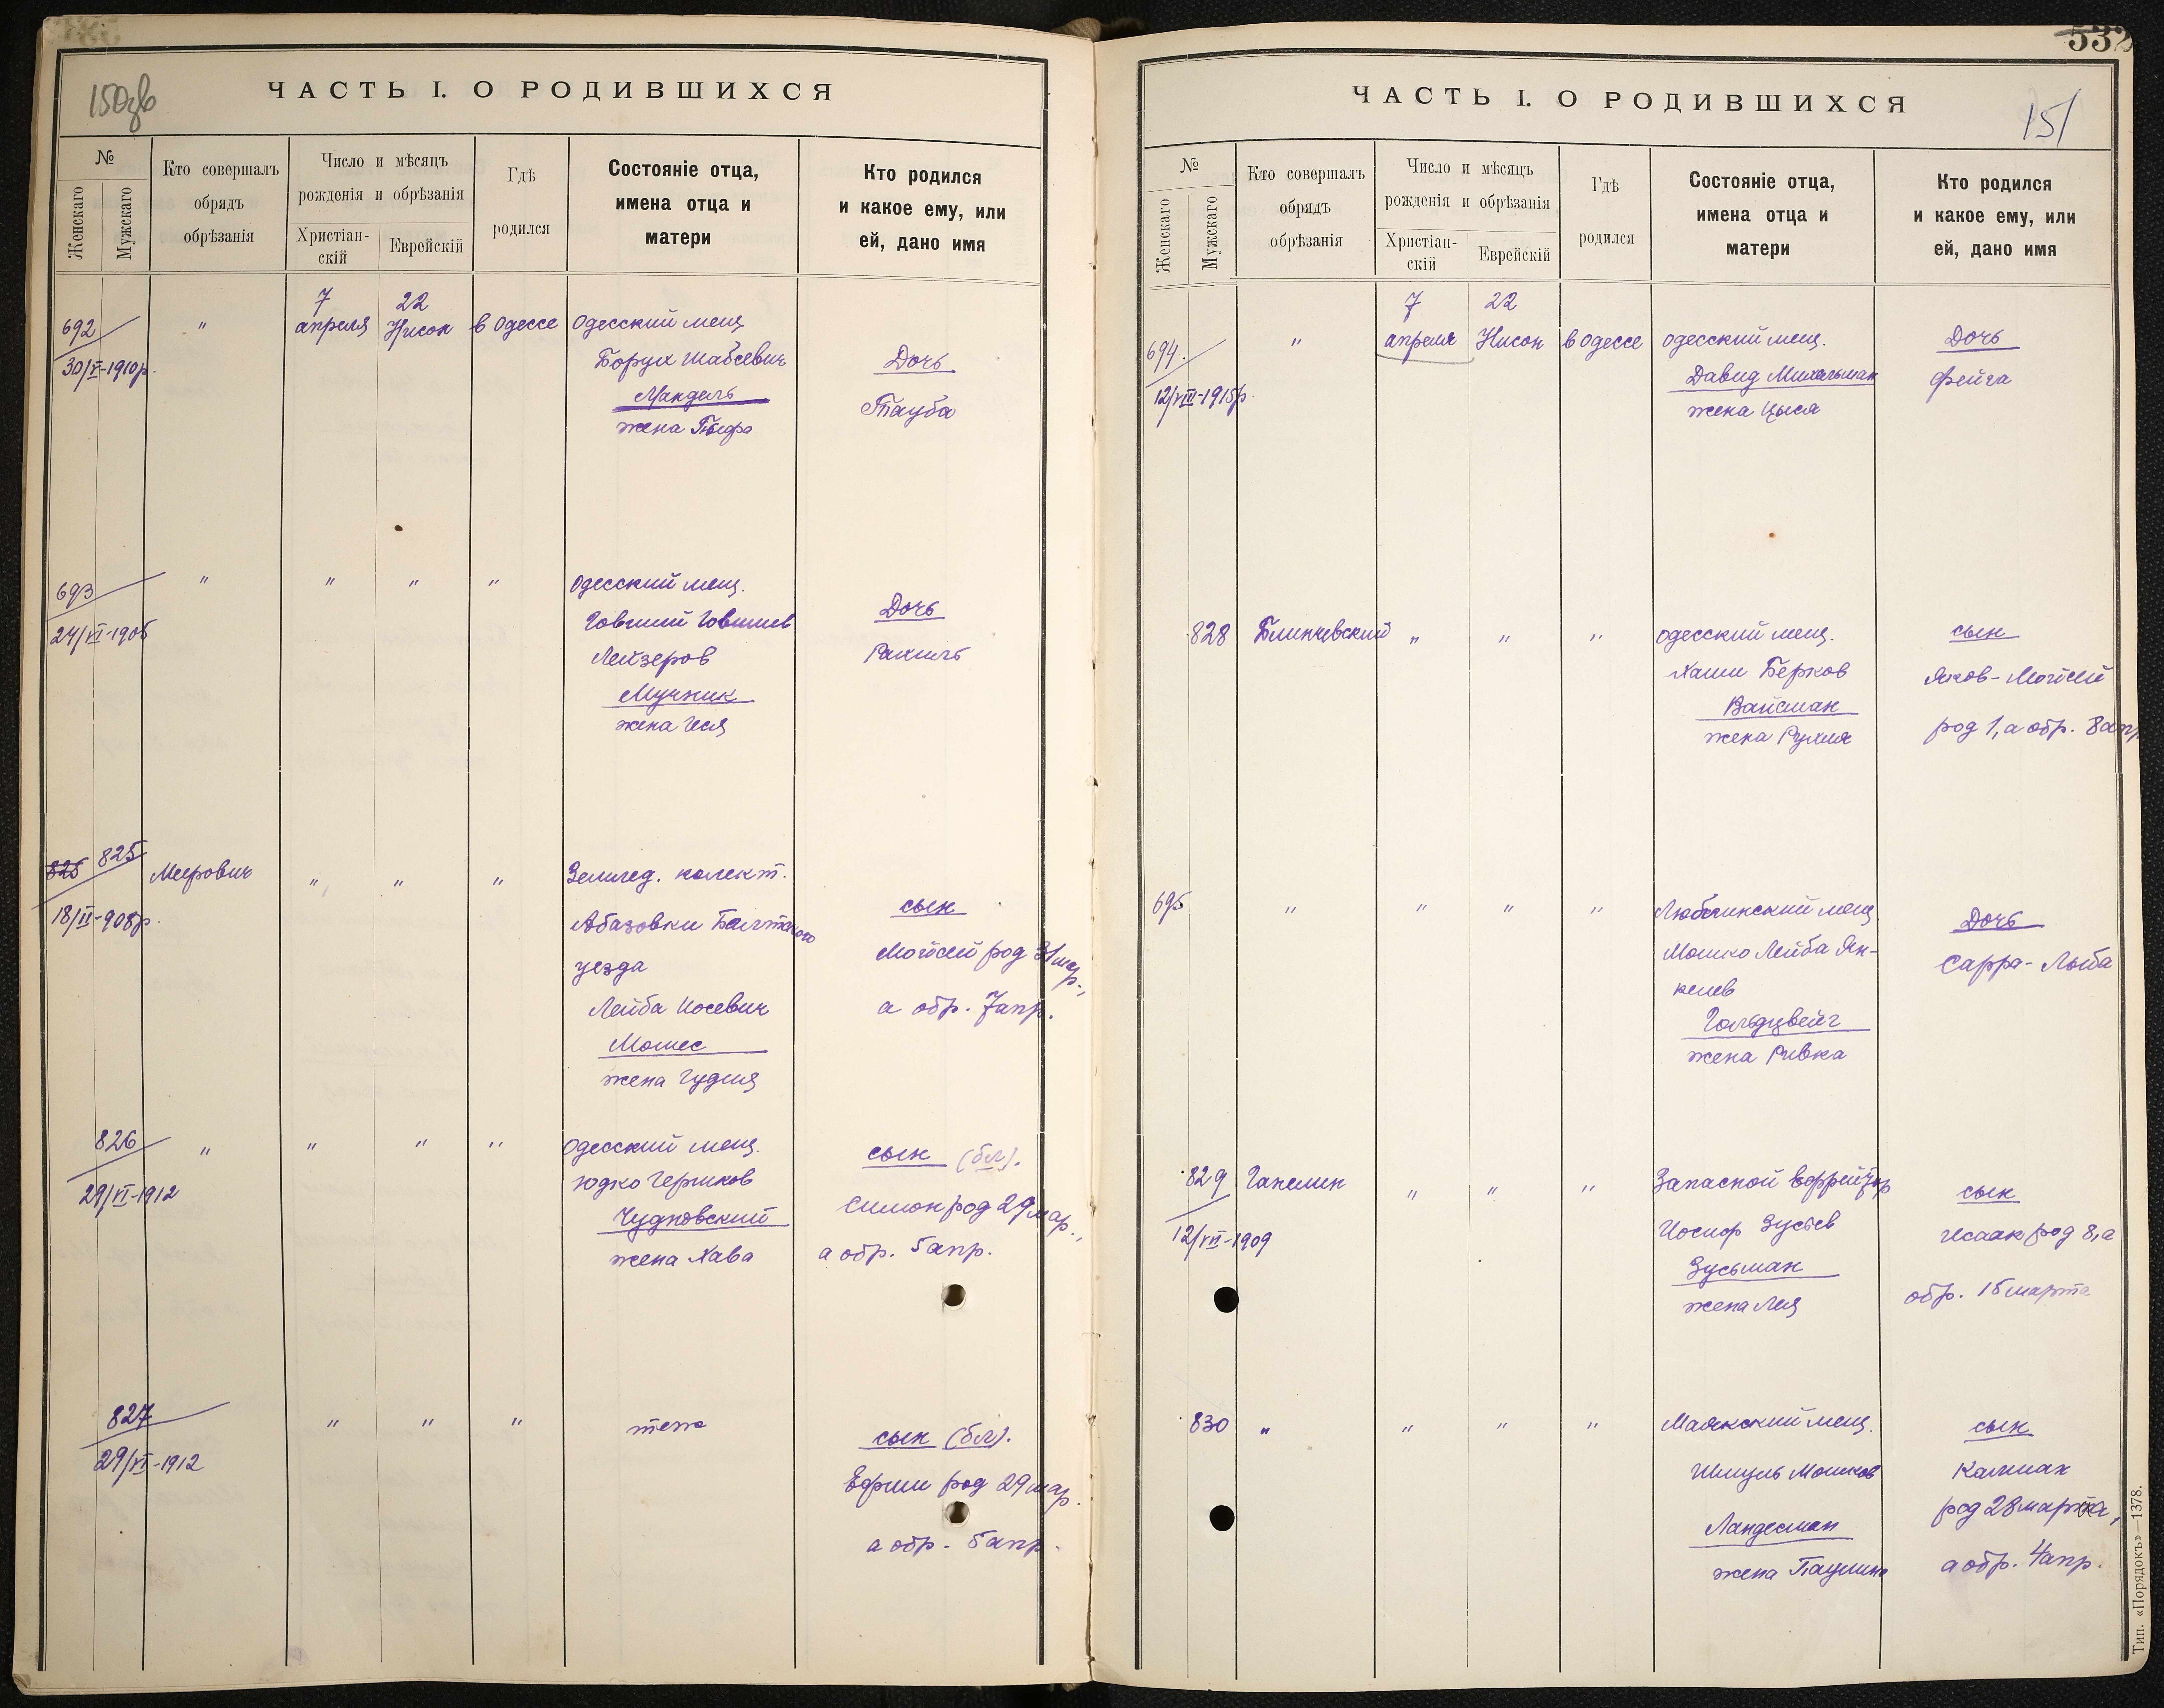 150об
ЧАСТЬ I. О РОДИВШИХСЯ
№
Женскаго
Мужскаго
Кто совершалъ
обрядъ
обрѣзанія
Число и мѣсяцъ
рожденія и обрѣзанія
Христіан-
скій
Еврейскій
Гдѣ
родился
Состояніе отца,
имена отца и
матери
Кто родился
и какое ему, или
ей, дано имя
7 22
692 " апреля Нисон в Одессе Одесский мещ.
30/V-1910р. Борух Шабсевич Дочь
Мандель Тауба
жена
693 " " " " Одесский мещ.
24/VI-1905 Дочь
Лейзеров Рахиль
Мучник
жена Чеся
825 825 Меерович " " " Землед. колект.
18/II-908р. Абазовки Балтского сын
уезда Мойсей род 31 мар.,
Лейба Иосевич а обр. 7 апр.
Мошес
жена Гудля
826 " " " " Одесский мещ. сын (бл).
29/VI-1912 Юдко Гершков Симон род 29 мар.,
Чудновский а обр. 5 апр.
жена Хава
827 " " " тепе сын (бл).
29/VI-1912 Ефрим род 29 мар.
а обр. 5 апр.
532
ЧАСТЬ I. О РОДИВШИХСЯ
151
№
Женскаго
Мужскаго
Кто совершалъ
обрядъ
обрѣзанія
Число и мѣсяцъ
рожденія и обрѣзанія
Христіан-
скій
Еврейскій
Гдѣ
родился
Состояніе отца,
имена отца и
матери
Кто родился
и какое ему, или
ей, дано имя
7 22
694. " апреля Нисон в одессе одесский мещ. Дочь
12/VIII-1915р. Давид Михельман Фейга
жена Цыся
828 Блинчевский " " " одесский мещ. сын
Хаим Берков Яков-Мойсей
Вайсман род 1, а обр. 8 апр.
жена Рухля
695 " " " " Люблинский мещ Дочь
Мошко Лейба Ян- Сарра-Лыба
келев
Гольдцвейг
жена Ривка
829 Гапелин " " " Запасной ефрейтор сын
12/VII-1909 Иосиф Зусьев Исаак род 8, а
Зусьман обр. 15 марта
жена Лея
830 " " " " Маякский мещ. сын
Шмуль Мошков Калман
Ландесман род 28 марта,
жена Паулина а обр. 4 апр.
Тип. «Порядокъ»—1378.